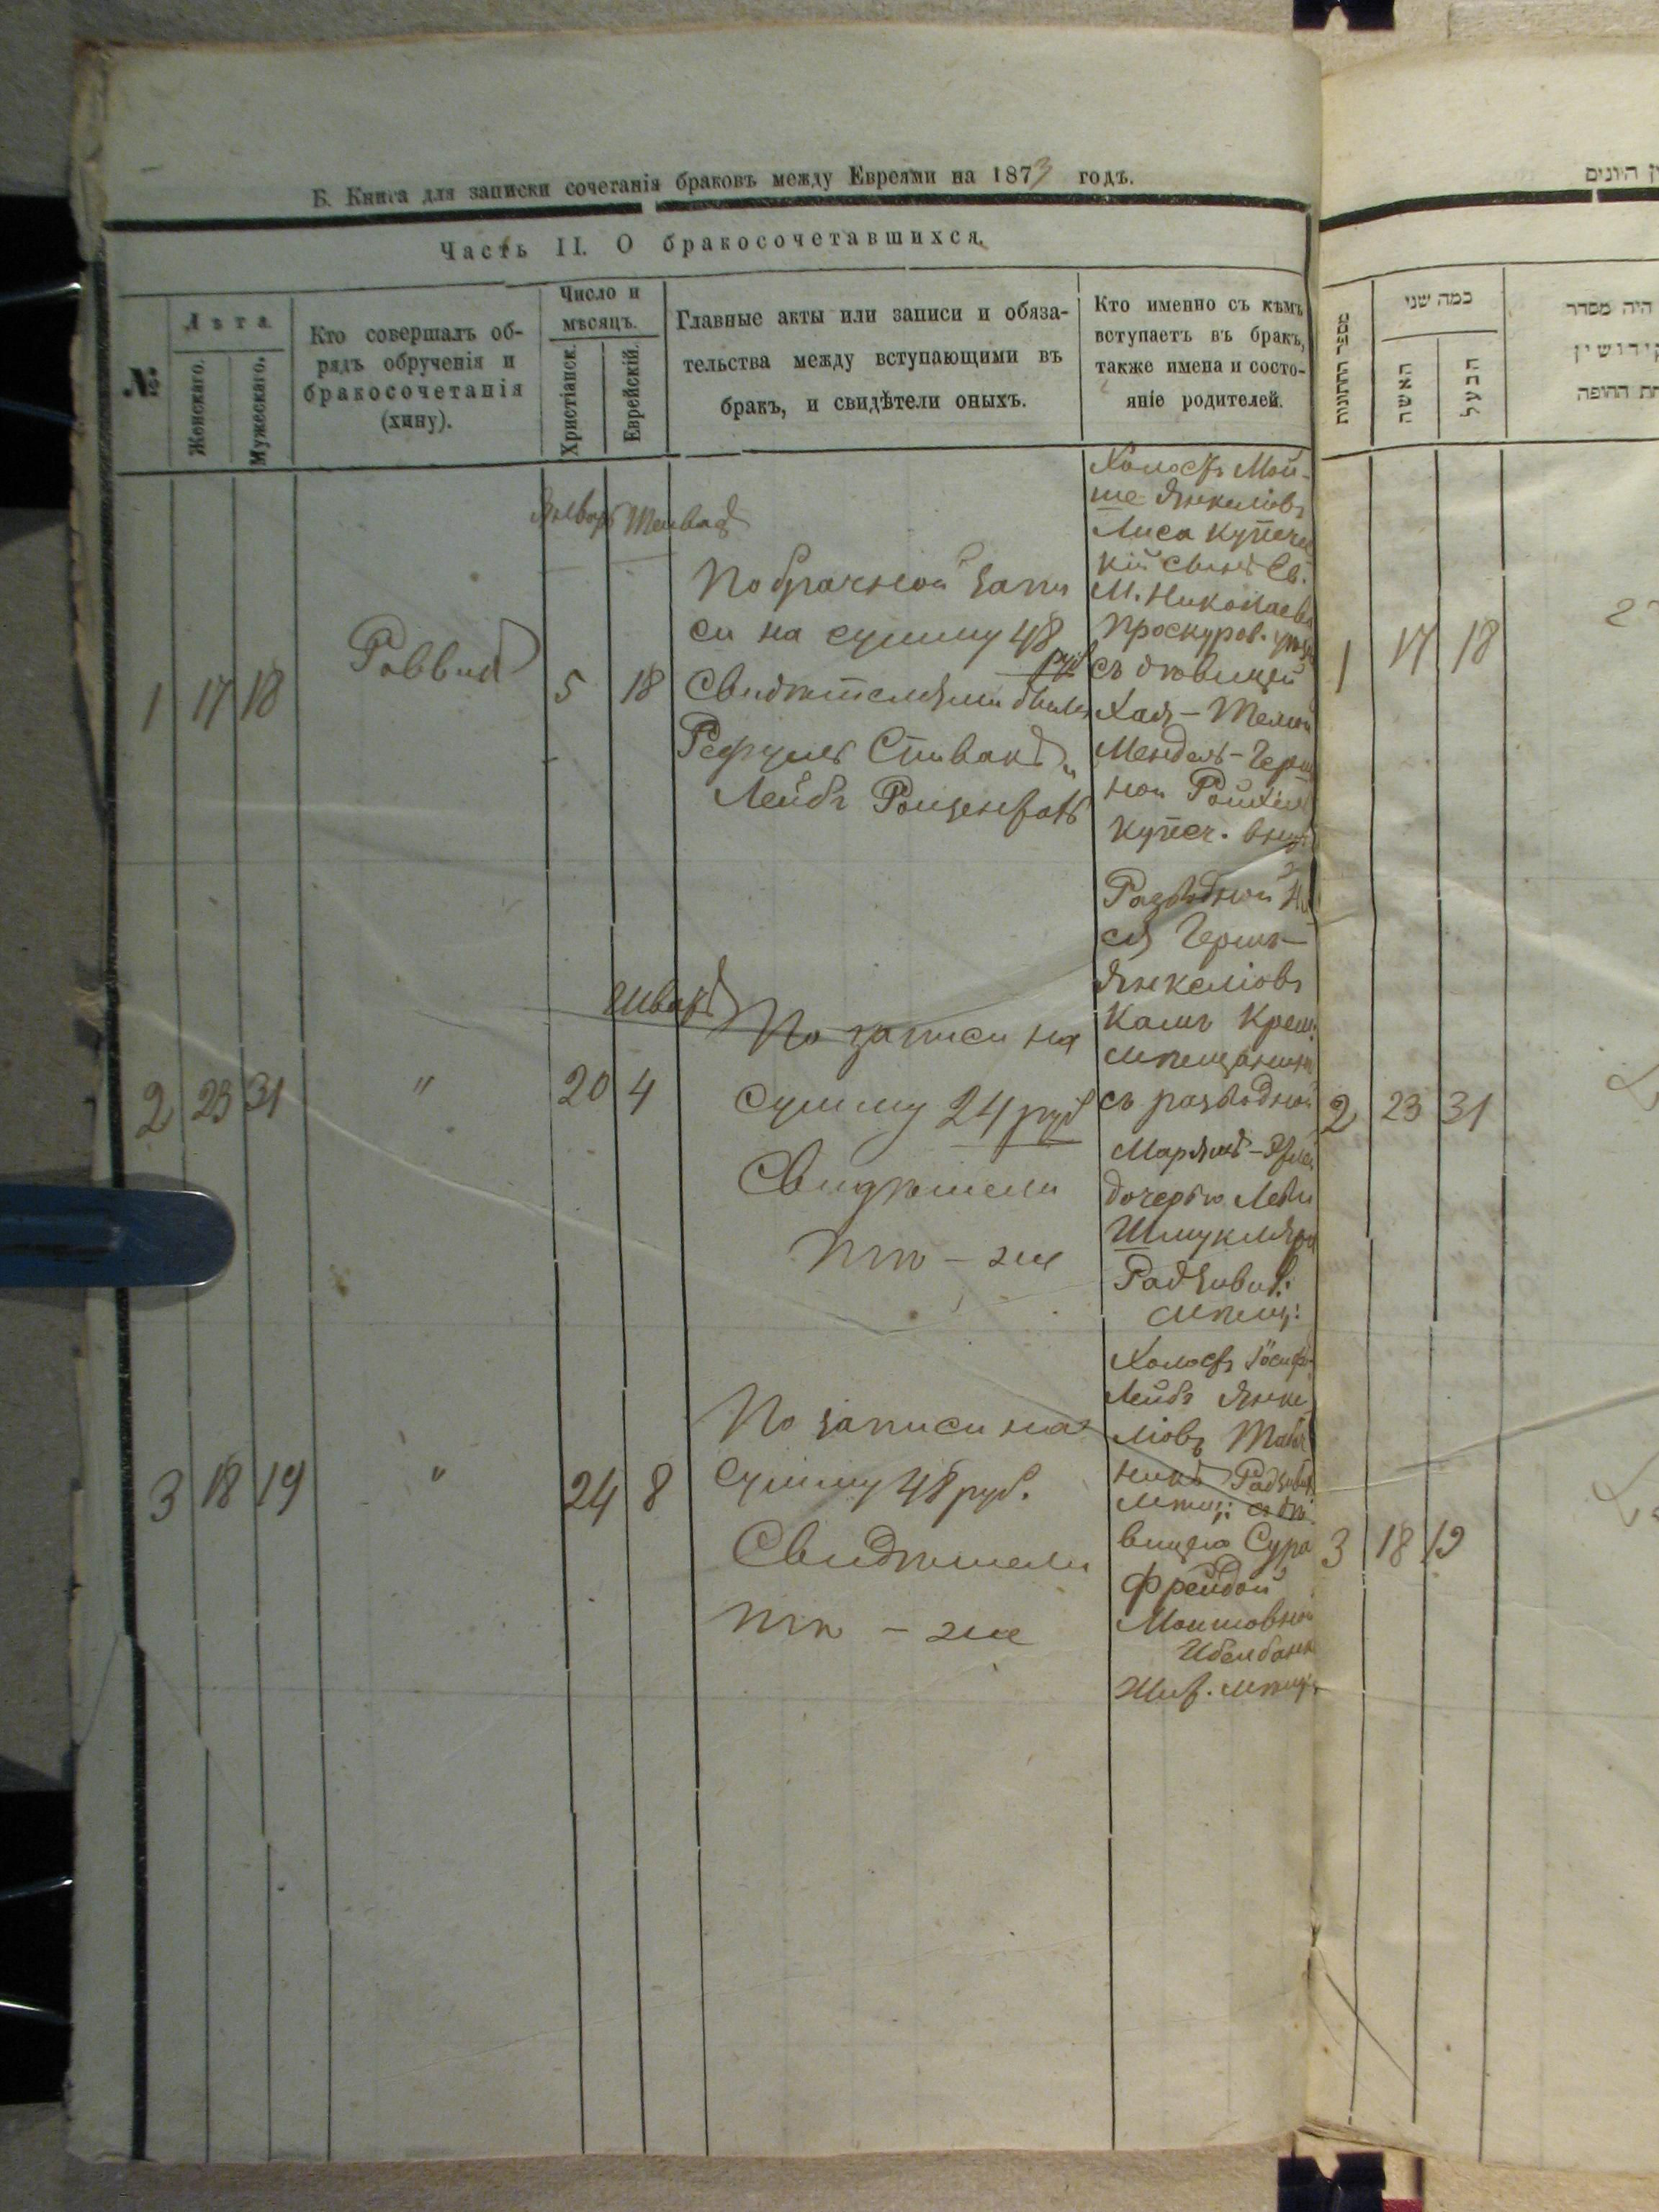 Б. Книга для записки сочетанія браковъ между Евреями на 1873 годъ.
Часть II. О бракосочетавшихся.
№:
Лѣта.
Женскаго.
Мужескаго.
Кто совершалъ об-
рядъ обрученія и
бракосочетанія
(хину).
Число и
мѣсяцъ.
Христіанск.
Еврейскій.
Главные акты или записи и обяза-
тельства между вступающими въ
бракъ, и свидѣтели оныхъ.
Кто именно съ кѣмъ
вступаетъ въ бракъ,
также имена и состо-
яніе родителей.
Январь
1 17 18
Раввинъ
5 18
По брачной запи
си на сумму 48
руб
Свидѣтелями были
Спивакъ и
Лейбъ
Холостъ Мой-
ше Янкеліовъ
Лиса купечес
кій сынъ
М. Николаева
Проскуров. уѣзда
съ дѣвицей
Хая-
Мендель-Герш
ной
Купеч. внуч
2 23 31
"
20 4
По записи на
сумму 24 руб
Свидѣтели
тѣ-же
Разводной
Герш-
Янкеліовъ
мѣщанинъ
съ разводной
дочерью
Радзивил:
мѣщ:
3 18 19
"
24 8
По записи на
сумму 48 руб.
Свидѣтели
тѣ-же
Холостъ Іосифъ
Лейбъ Янке
ліовъ
никъ Радзивил
мѣщ: съ дѣ
вицею Сура
Фрейдой
Мошковной
мѣщ.
ן היונים
מספר החתונות
כמה שני
האשה
הבעל
היה מסדר
קידושין
חת החופה
1 17 18
2 23 31
3 18 19